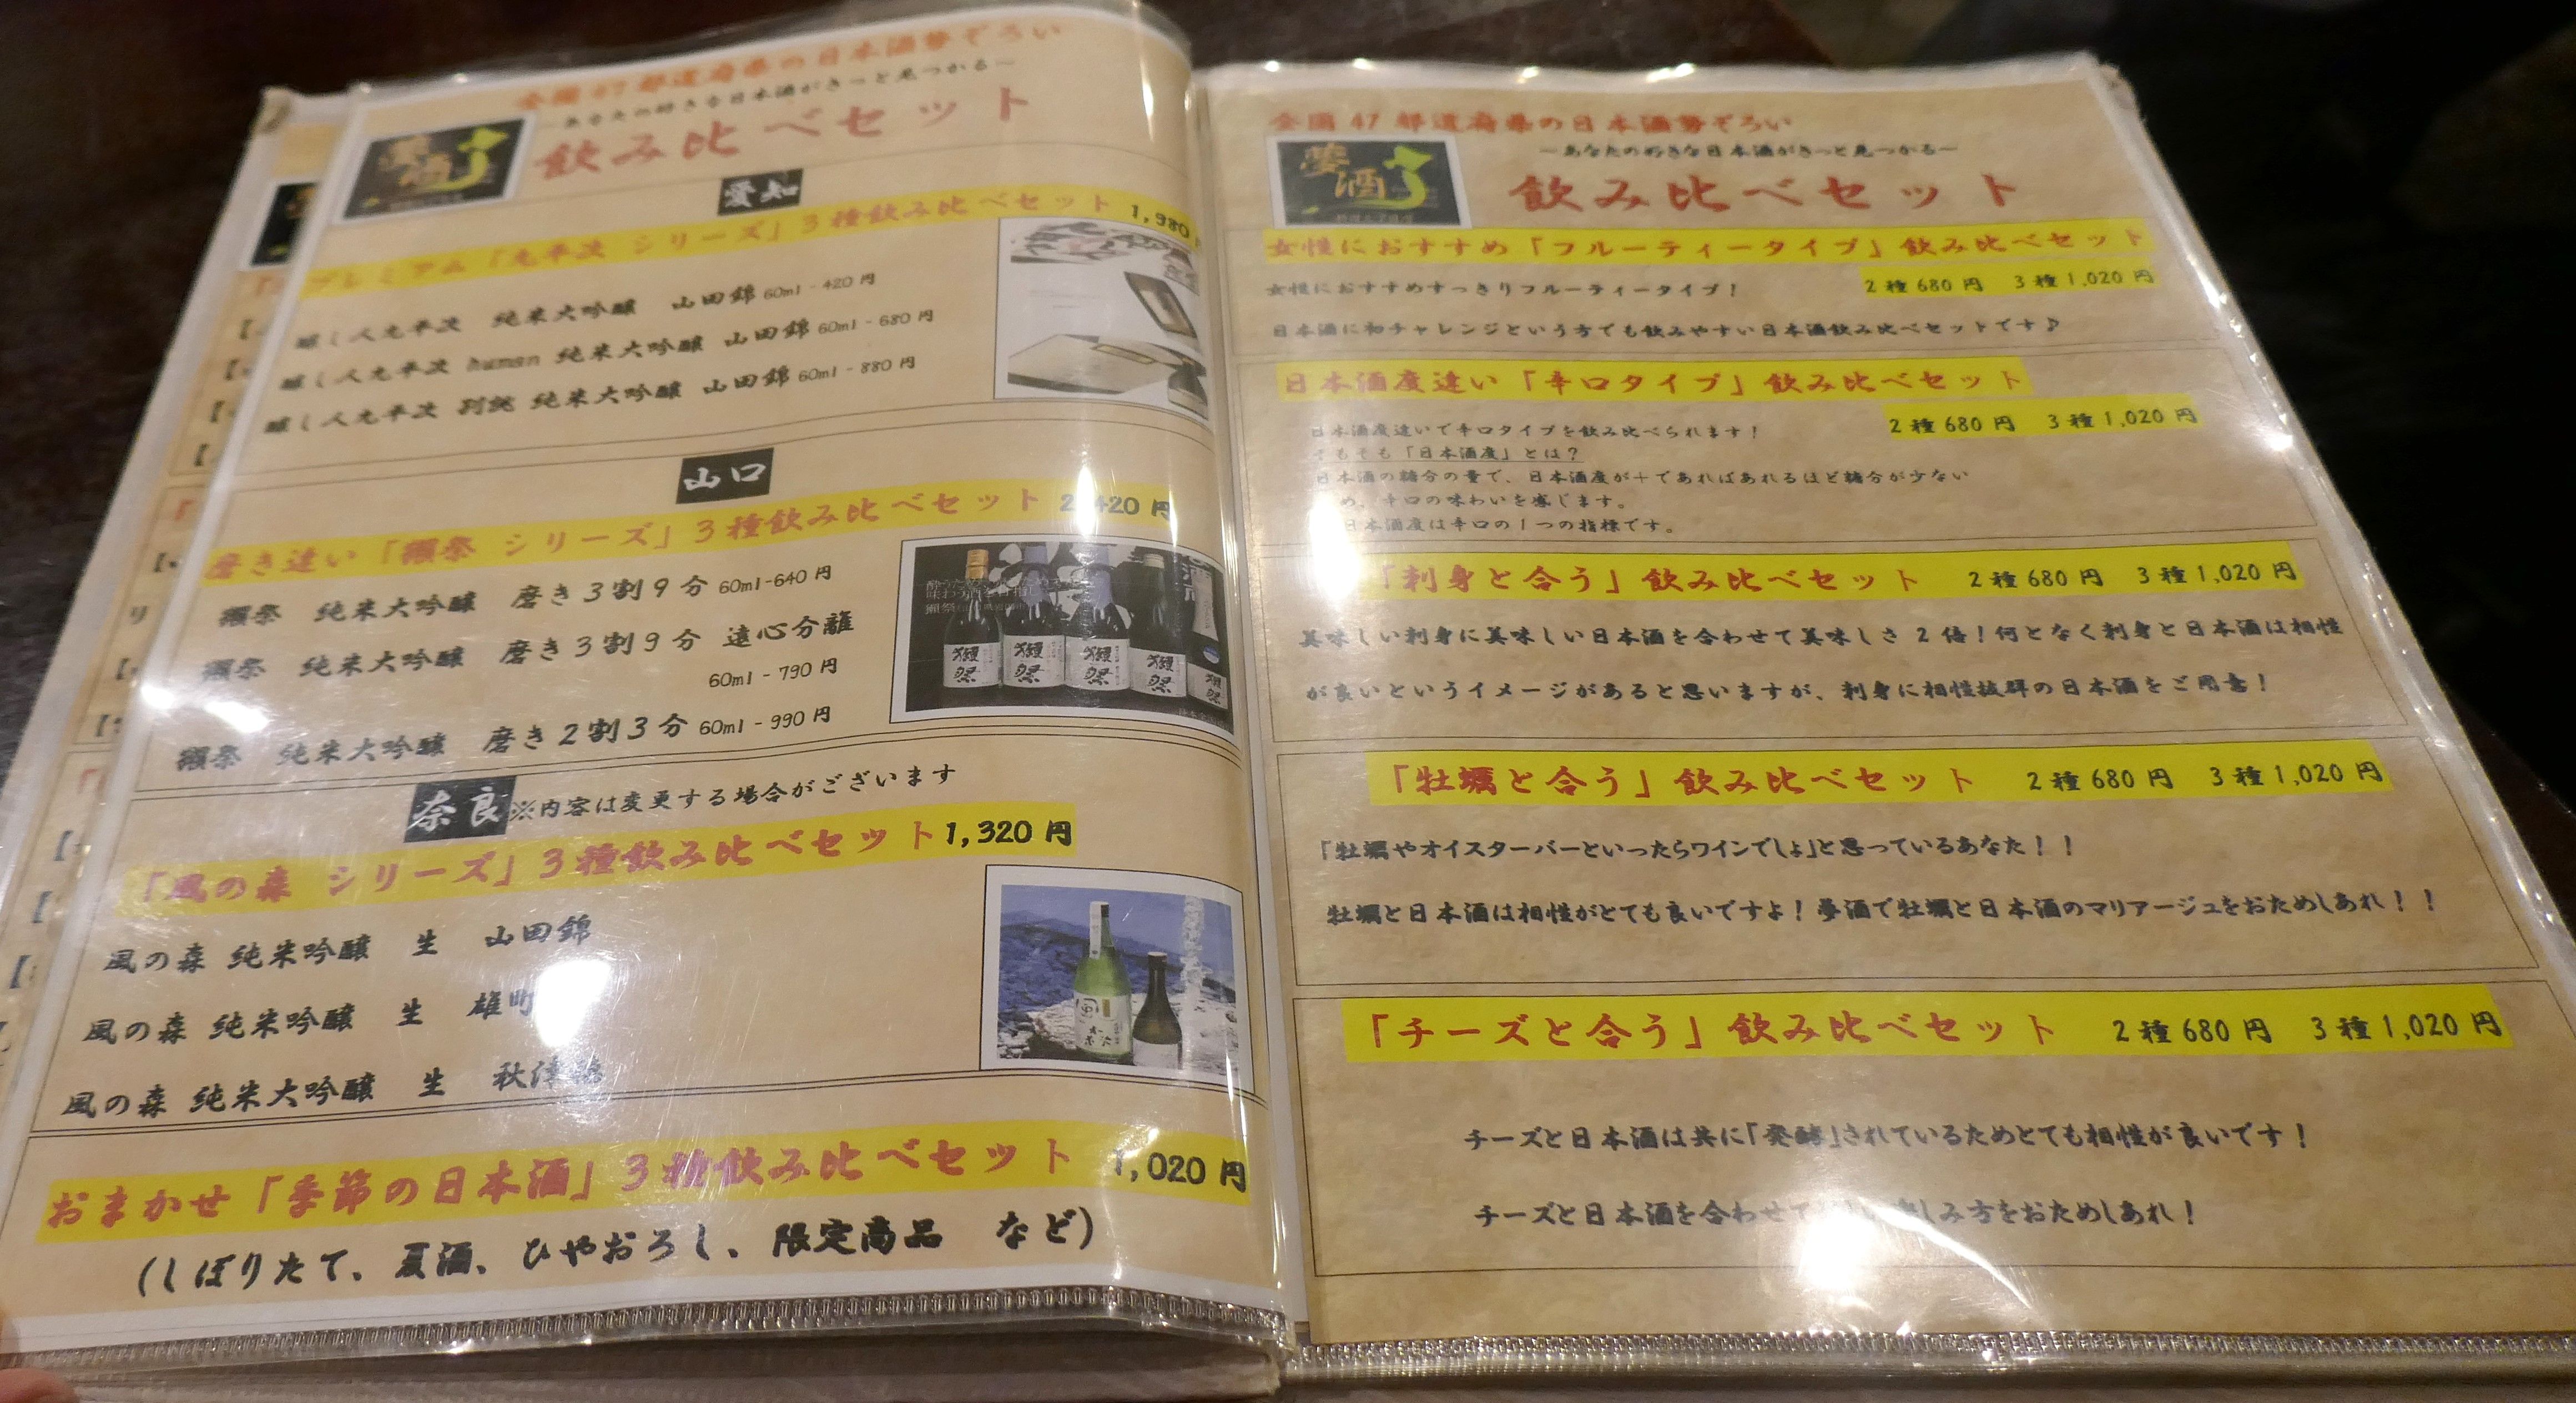 全国47都道府県の日本酒勢ぞろい
～あなたの好きな日本酒がきっと見つかる～
夢酒
飲み比べセット
愛知
プレミアム「九平次 シリーズ」3種飲み比べセット 1,980
醸し人九平次 純米大吟醸 山田錦 60ml - 420円
醸し人九平次 human 純米大吟醸 山田錦 60ml - 680円
醸し人九平次 別誂 純米大吟醸 山田錦 60ml - 880円
山口
磨き違い「獺祭 シリーズ」3種飲み比べセット 2,420円
獺祭 純米大吟醸 磨き3割9分 60ml-640円
獺祭 純米大吟醸 磨き3割9分 遠心分離
60ml - 790円
獺祭 純米大吟醸 磨き2割3分 60ml - 990円
獺祭
獺祭
獺祭
獺祭
獺祭
奈良 ※内容は変更する場合がございます
「風の森 シリーズ」3種飲み比べセット 1,320円
風の森 純米吟醸 生 山田錦
風の森 純米吟醸 生 雄町
風の森 純米大吟醸 生 秋津
おまかせ「季節の日本酒」3種飲み比べセット 1,020円
（しぼりたて、夏酒、ひやおろし、限定商品 など）
全国47都道府県の日本酒勢ぞろい
～あなたの好きな日本酒がきっと見つかる～
夢酒
飲み比べセット
女性におすすめ「フルーティータイプ」飲み比べセット
女性におすすめすっきりフルーティータイプ！ 2種680円 3種1,020円
日本酒に初チャレンジという方でも飲みやすい日本酒飲み比べセットです♪
日本酒度違い「辛口タイプ」飲み比べセット
2種680円 3種1,020円
日本酒度違いで辛口タイプを飲み比べられます！
そもそも「日本酒度」とは？
日本酒の糖分の量で、日本酒度が＋であればあれるほど糖分が少ない
め、辛口の味わいを感じます。
日本酒度は辛口の1つの指標です。
「刺身と合う」飲み比べセット 2種680円 3種1,020円
美味しい刺身に美味しい日本酒を合わせて美味しさ2倍！何となく刺身と日本酒は相性
が良いというイメージがあると思いますが、刺身に相性抜群の日本酒をご用意！
「牡蠣と合う」飲み比べセット 2種680円 3種1,020円
「牡蠣やオイスターバーといったらワインでしょ」と思っているあなた！！
牡蠣と日本酒は相性がとても良いですよ！夢酒で牡蠣と日本酒のマリアージュをおためしあれ！！
「チーズと合う」飲み比べセット 2種680円 3種1,020円
チーズと日本酒は共に「発酵」されているためとても相性が良いです！
チーズと日本酒を合わせて しみ方をおためしあれ！